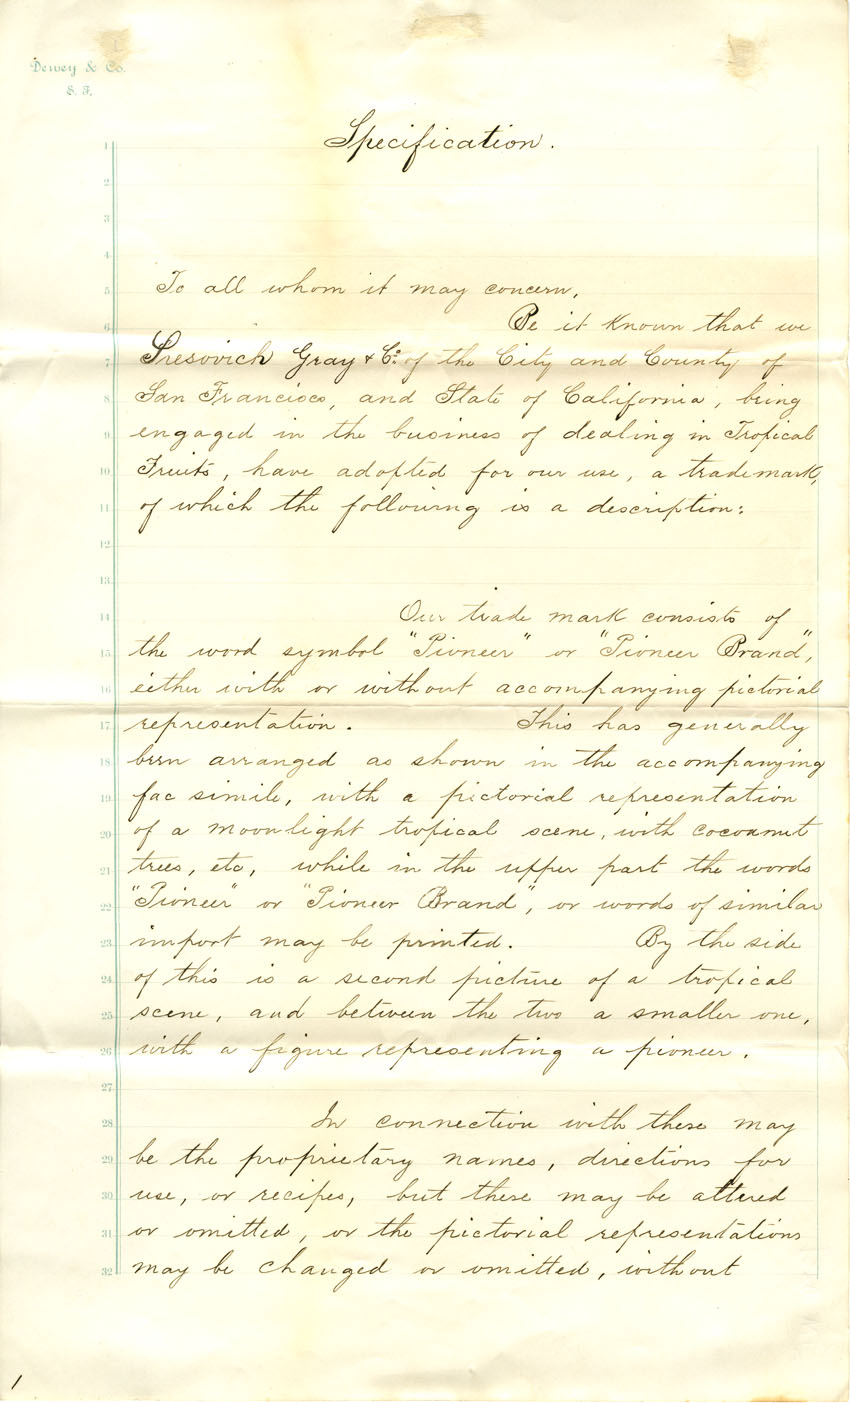 Dewey & Co.
S. F.
Specification.
1
2
3
4
5 To all whom it may concern,
6 Be it known that we
7 Sresovich Gray & Co. of the City and County of
8 San Francisco, and State of California, being
9 engaged in the business of dealing in Tropical
10 Fruits, have adopted for our use, a trademark,
11 of which the following is a description:
12
13
14 Our trade mark consists of
15 the word symbol "Pioneer" or "Pioneer Brand",
16 either with or without accompanying pictorial
17 representation. This has generally
18 been arranged as shown in the accompanying
19 fac simile, with a pictorial representation
20 of a moonlight tropical scene, with cocoanut
21 trees, etc, while in the upper part the words
22 "Pioneer" or "Pioneer Brand", or words of similar
23 import may be printed. By the side
24 of this is a second picture of a tropical
25 scene, and between the two a smaller one,
26 with a figure representing a pioneer.
27
28 In connection with these may
29 be the proprietary names, directions for
30 use, or recipes, but these may be altered
31 or omitted, or the pictorial representations
32 may be changed or omitted, without
1